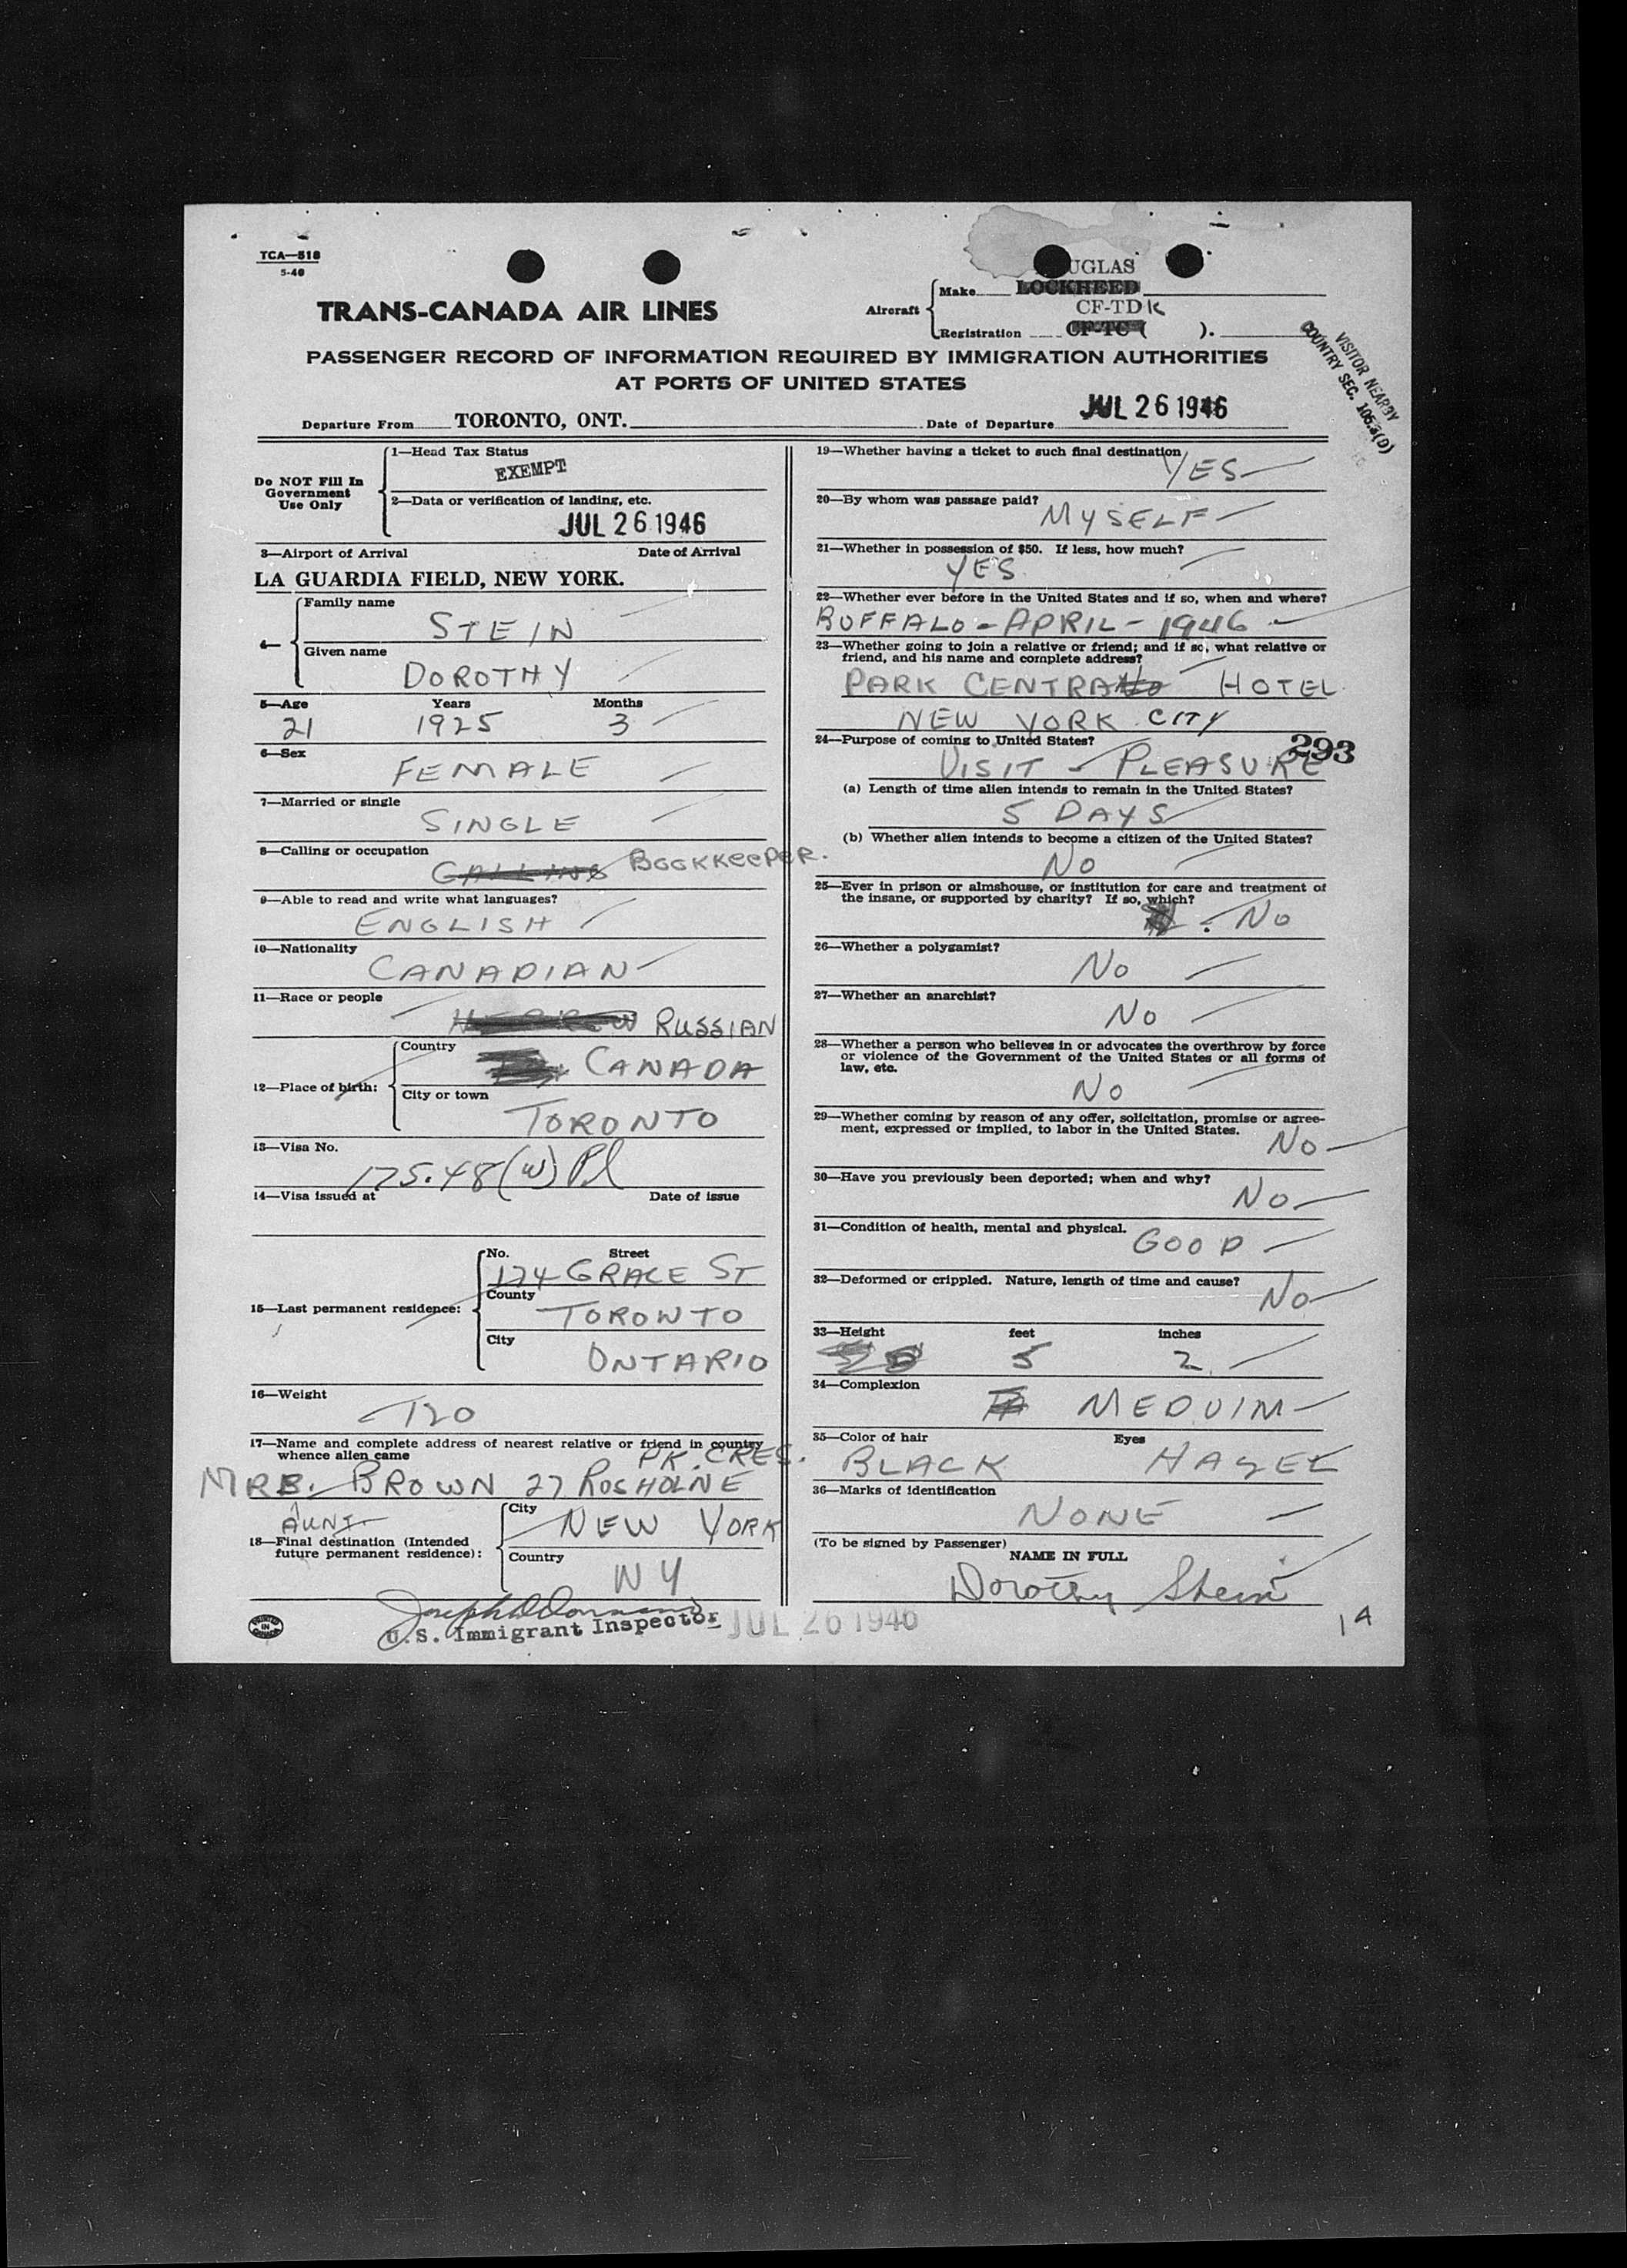 TCA—518
5-40
TRANS-CANADA AIR LINES
UGLAS
Aircraft
Make
LOCKHEED
CF-TDK
Registration
CF-TC ( ).
PASSENGER RECORD OF INFORMATION REQUIRED BY IMMIGRATION AUTHORITIES
AT PORTS OF UNITED STATES
VISITOR NEARBY
COUNTRY SEC. 105.3(D)
Departure From TORONTO, ONT.
Date of Departure JUL 26 1946
Do NOT Fill In
Government
Use Only
1—Head Tax Status
EXEMPT
2—Data or verification of landing, etc.
JUL 26 1946
3—Airport of Arrival Date of Arrival
LA GUARDIA FIELD, NEW YORK.
4—
Family name
STEIN
Given name
DOROTHY
5—Age Years Months
21 1925 3
6—Sex
FEMALE
7—Married or single
SINGLE
8—Calling or occupation
CALLING BOOKKEEPER.
9—Able to read and write what languages?
ENGLISH
10—Nationality
CANADIAN
11—Race or people
HEBREW RUSSIAN
12—Place of birth:
Country
CANADA
City or town
TORONTO
13—Visa No.
175.48(w) Pl
14—Visa issued at Date of issue
15—Last permanent residence:
No. Street
174 GRACE ST
County
TORONTO
City
ONTARIO
16—Weight
120
17—Name and complete address of nearest relative or friend in country
whence alien came
PK. CRES.
MRS. BROWN 27 ROSHOLNE
AUNT
18—Final destination (Intended
future permanent residence):
City
NEW YORK
Country
NY
U.S. Immigrant Inspector JUL 26 1946
19—Whether having a ticket to such final destination
YES
20—By whom was passage paid?
MYSELF
21—Whether in possession of $50. If less, how much?
YES
22—Whether ever before in the United States and if so, when and where?
BUFFALO - APRIL - 1946
23—Whether going to join a relative or friend; and if so, what relative or
friend, and his name and complete address?
PARK CENTRA HOTEL
NEW YORK CITY
24—Purpose of coming to United States?
293
VISIT - PLEASURE
(a) Length of time alien intends to remain in the United States?
5 DAYS
(b) Whether alien intends to become a citizen of the United States?
NO
25—Ever in prison or almshouse, or institution for care and treatment of
the insane, or supported by charity? If so, which?
NO
26—Whether a polygamist?
NO
27—Whether an anarchist?
NO
28—Whether a person who believes in or advocates the overthrow by force
or violence of the Government of the United States or all forms of
law, etc.
NO
29—Whether coming by reason of any offer, solicitation, promise or agree-
ment, expressed or implied, to labor in the United States.
NO
30—Have you previously been deported; when and why?
NO
31—Condition of health, mental and physical.
GOOD
32—Deformed or crippled. Nature, length of time and cause?
NO
33—Height feet inches
5 2
34—Complexion
MEDUIM
35—Color of hair Eyes
BLACK HAZEL
36—Marks of identification
NONE
(To be signed by Passenger)
NAME IN FULL
Dorothy Stein
14